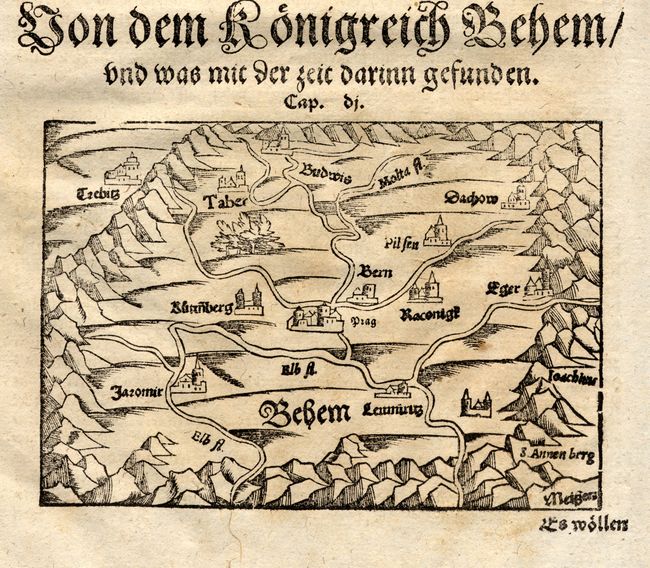 Von dem Königreich Behem/
vnd was mit der zeit darinn gefunden.
Cap. dj.
Budwis
Molta fl.
Trebitz
Taber
Dachow
Pilsen
Bern
Eger
Kuttnberg
Prag
Raconigk
Elb fl.
Joachims
Jaromir
Behem
Leitmiritz
Elb fl.
S. Annenberg
Meißen
Es wöllen